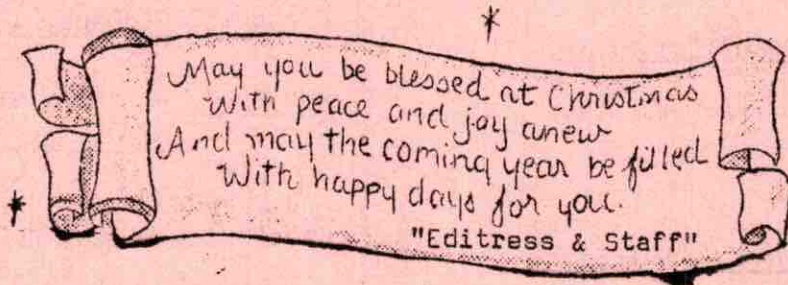 May you be blessed at Christmas
With peace and joy anew
And may the coming year be filled
With happy days for you.
"Editress & Staff"